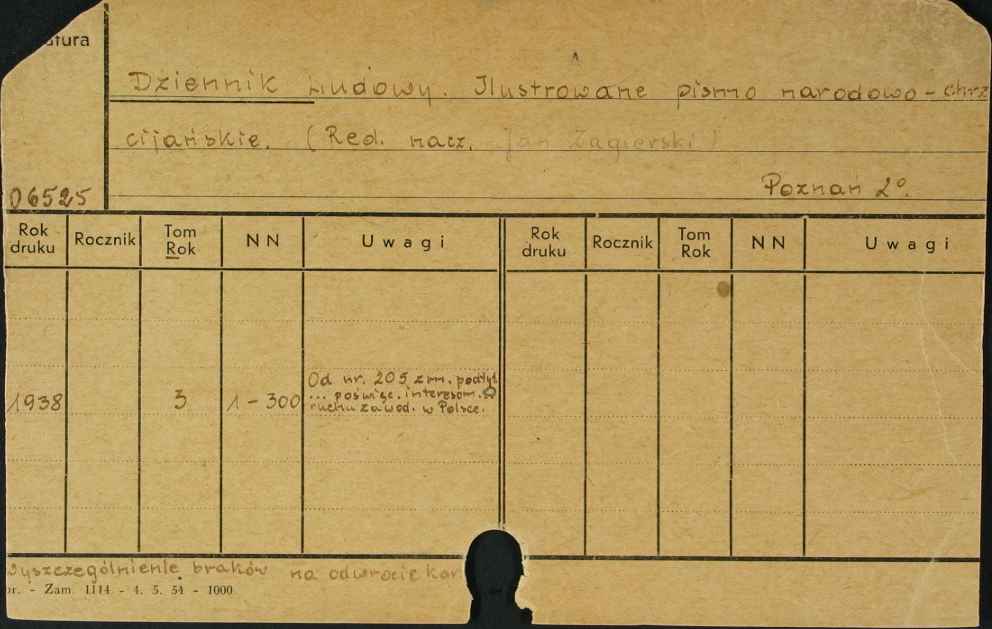 atura
Dziennik Ludowy. Ilustrowane pismo narodowo-chrz
cijańskie. (Red. nacz. Jan Zagierski)
06525
Poznań 2°.
Rok druku Rocznik Tom Rok N N Uwagi Rok druku Rocznik Tom Rok N N Uwagi
1938 3 1-300 Od nr. 205 zm. podtyt.
... poświęc. interesom.
ruchu zawod. w Polsce.
wyszczególnienie braków na odwrocie kar
or. - Zam. 1114 - 4. 5. 54 - 1000